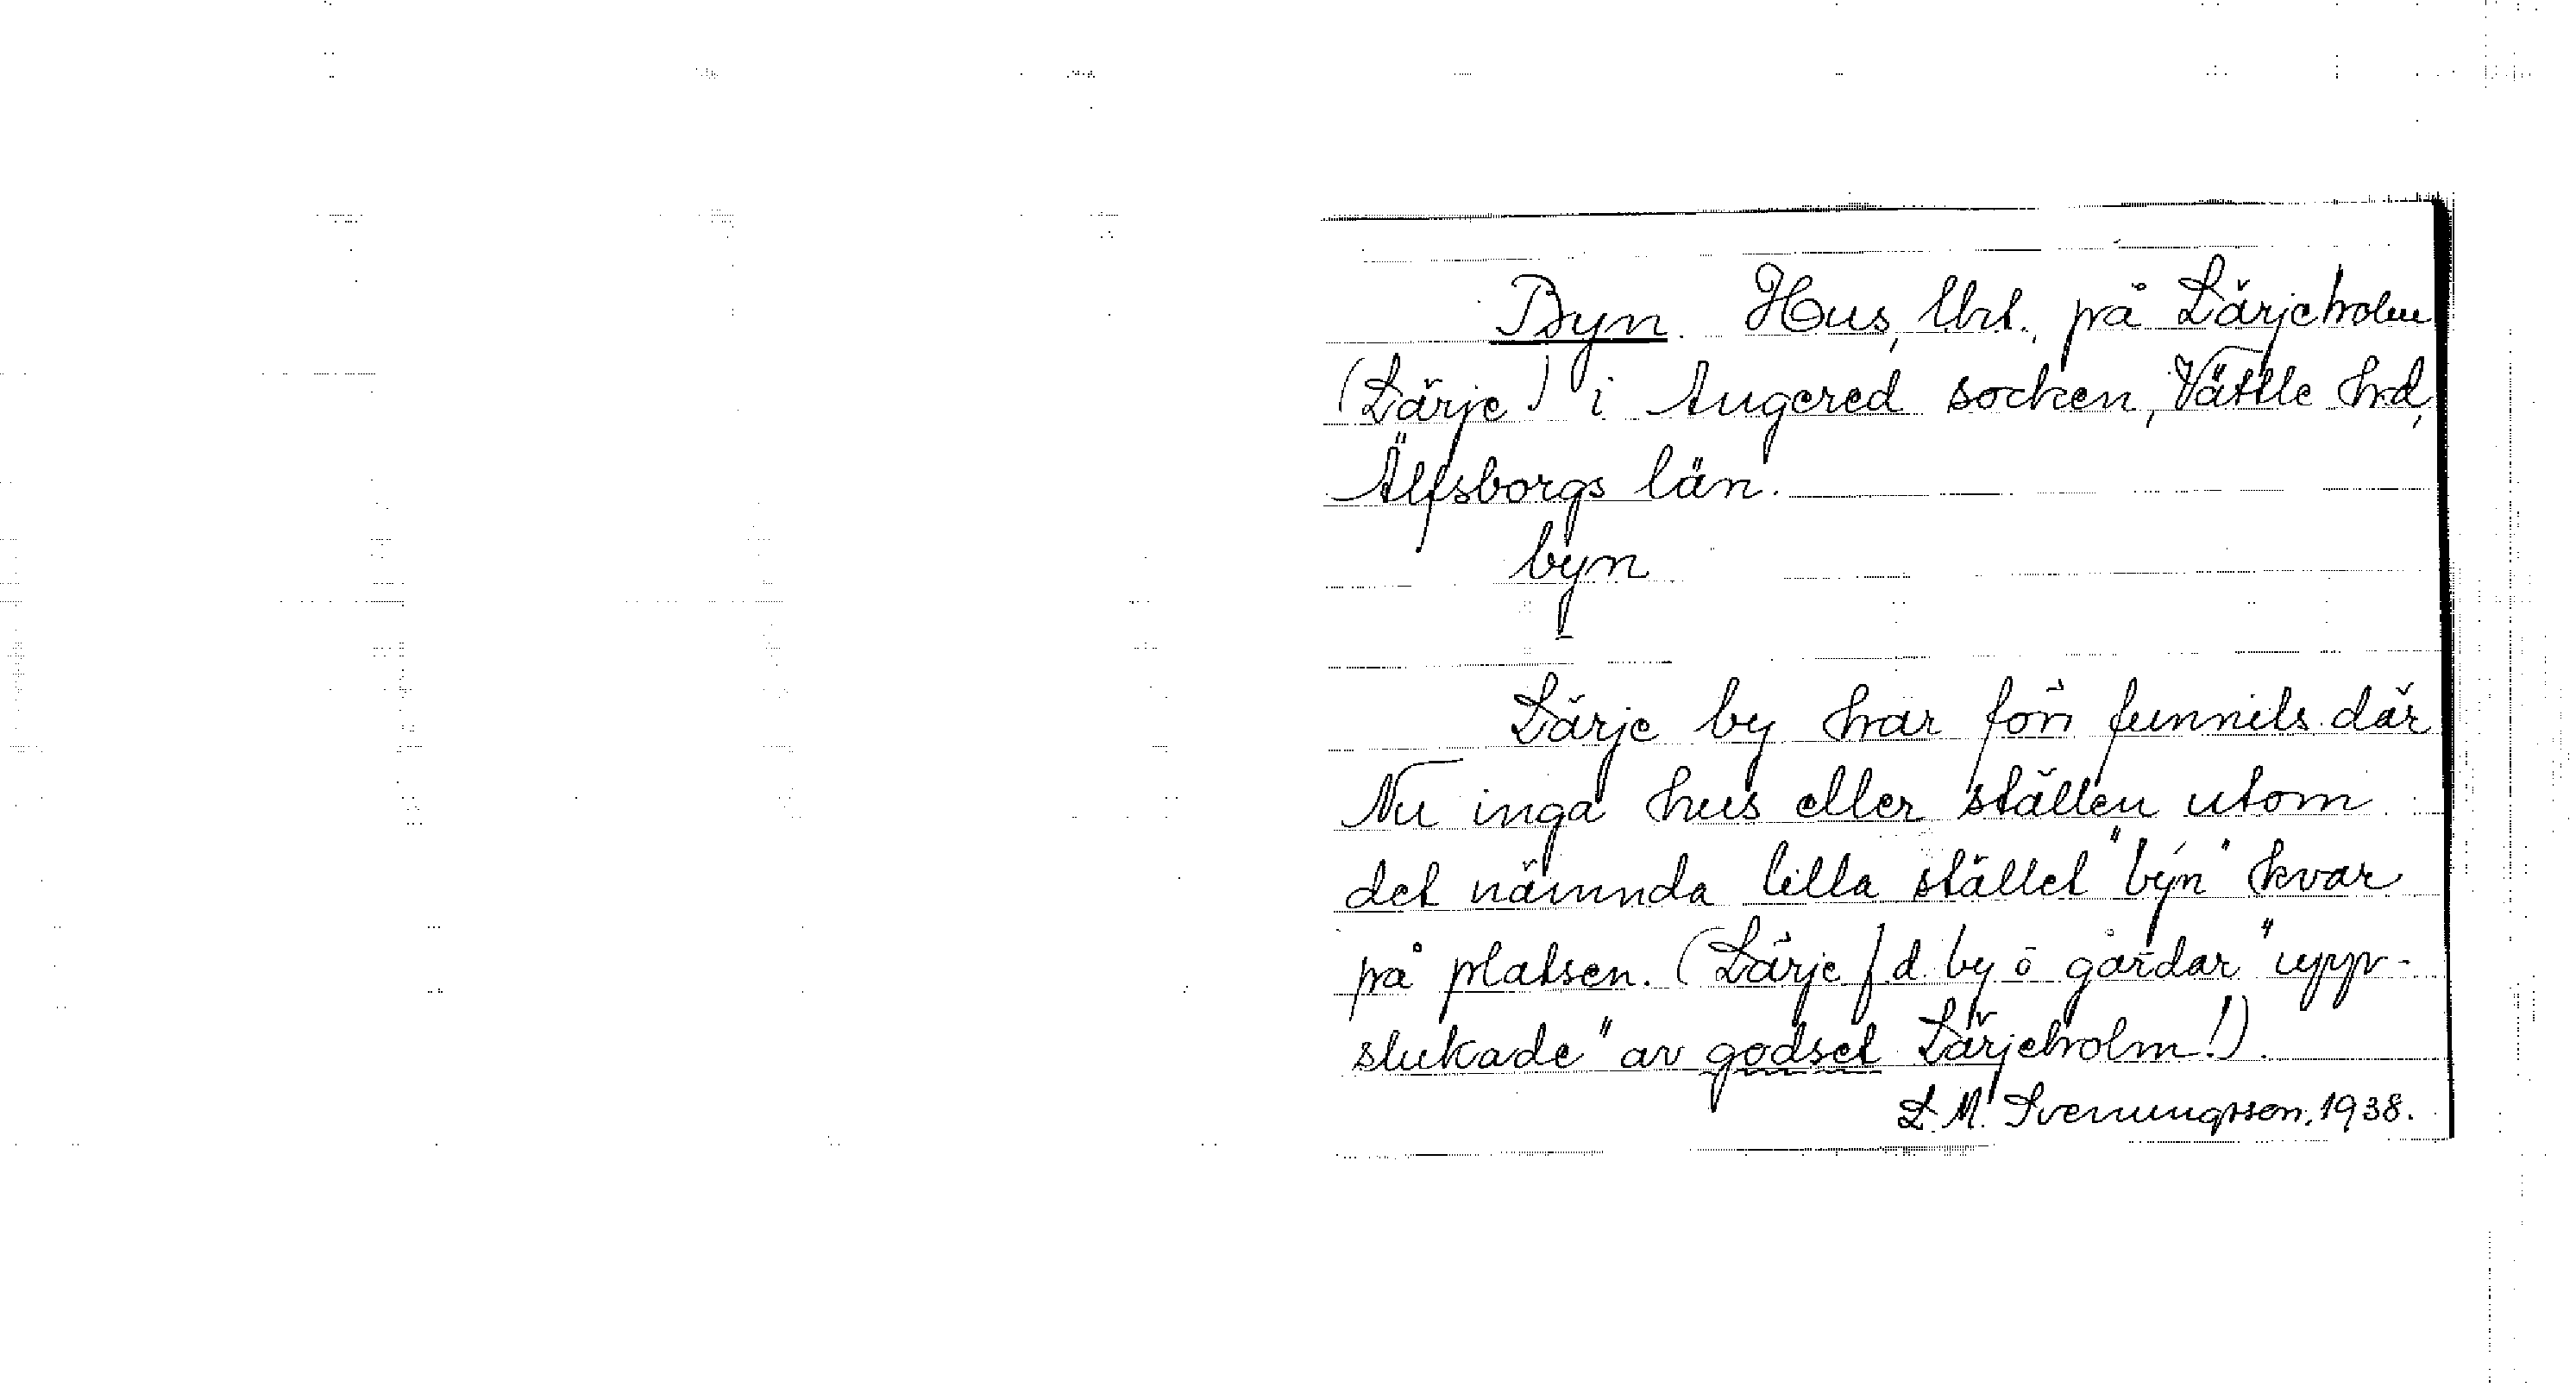 Byn. Hus, lht., på Lärjeholm
(Lärje) i Angered socken, Vättle hd,
Älfsborgs län.
byn
Lärje by har förr funnits där
Nu inga hus eller ställen utom
det nämnda lilla stället "byn" kvar
på platsen. (Lärje f d. by o gårdar "upp-
slukade" av godset Lärjeholm!).
S. M. Svenungsson, 1938.